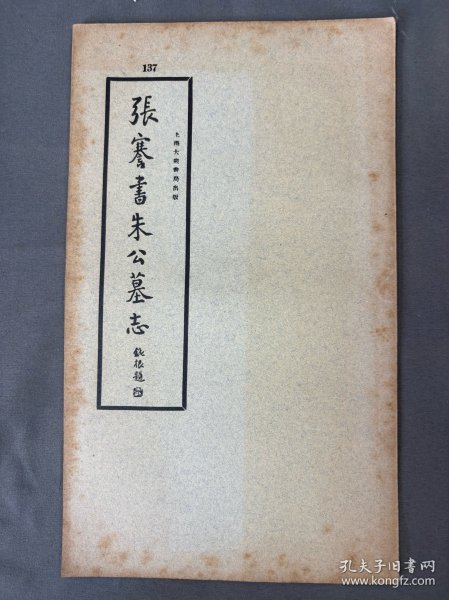 137
上海大眾書局出版
張謇書朱公墓志
鈍根題
孔夫子旧书网
www.kongfz.com